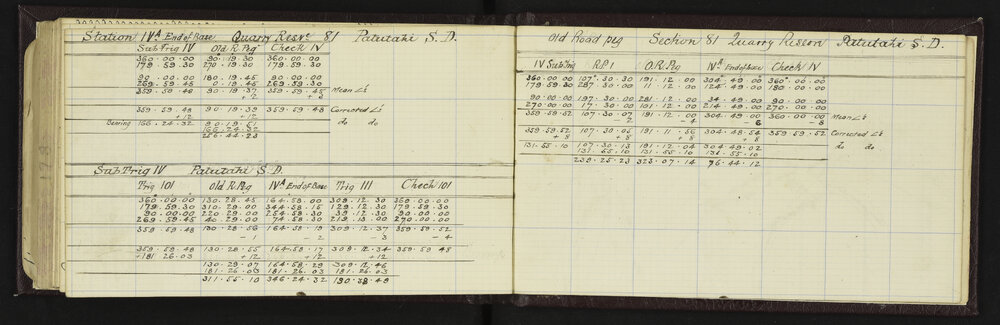 Station IVA End of Base Quarry Resve 81 Patutahi S.D.
Sub Trig IV Old R. Peg Check IV
360·00·00 90·19·30 360·00·00
179·59·30 270·19·30 179·59·30
90·00·00 180·19·45 90·00·00
269·59·45 0·19·45 269·59·30
359·59·48 90·19·37 359·59·45 Mean ∠s
+12 +3
359·59·48 90·19·39 359·59·48 Corrected ∠s
+12 +12 do do
Bearing 166·24·32 90·19·51
166·24·32
256·44·23
Sub Trig IV Patutahi S.D.
Trig 101 Old R. Peg IVA End of Base Trig 111 Check 101
360·00·00 130·28·45 164·58·00 309·12·30 360·00·00
179·59·30 310·29·00 344·58·15 129·12·30 179·59·30
90·00·00 220·29·00 254·58·30 39·12·30 90·00·00
269·59·45 40·29·00 74·58·30 219·13·00 270·00·00
359·59·48 130·28·56 164·58·19 309·12·37 359·59·52
- 1 - 2 - 3 - 4
359·59·48 130·28·55 164·58·17 309·12·34 359·59·48
+181·26·03 +12 +12 +12
130·29·07 164·58·29 309·12·46
181·26·03 181·26·03 181·26·03
311·55·10 346·24·32 130·38·49
Old Road peg Section 81 Quarry Reserve Patutahi S.D.
IV Sub Trig R.P.1 O.R. Peg IVA End of Base Check IV
360·00·00 107·30·30 191·12·00 304·49·00 360·00·00
179·59·30 287·30·00 11·12·00 124·49·00 180·00·00
90·00·00 197·30·00 281·12·00 34·49·00 90·00·00
270·00·00 17·30·00 101·12·00 214·49·00 270·00·00
359·59·52 107·30·07 191·12·00 304·49·00 360·00·00 Mean ∠s
- 2 - 4 - 6 - 8
359·59·52 107·30·05 191·11·56 304·48·54 359·59·52 Corrected ∠s
+8 +8 +8 +8 do do
131·55·10 107·30·13 191·12·04 304·49·02
131·55·10 131·55·10 131·55·10
239·25·23 323·07·14 76·44·12